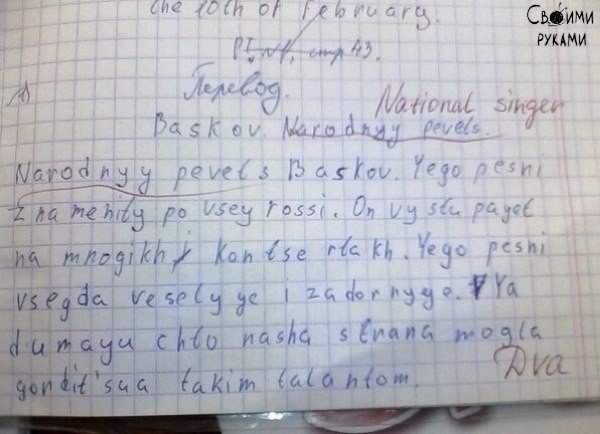 the 10th of February.
СВОИМИ
РУКАМИ
стр 43.
Перевод.
National singer
Baskov. Narodnyy pevets.
Narodnyy pevets Baskov. Yego pesni
znamenity po vsey rossi. On vystupayet
na mnogikh kontsertakh. Yego pesni
vsegda veselyye i zadornyye. Ya
dumayu chto nasha strana mogla
gordit'sua takim talantom.
Dva